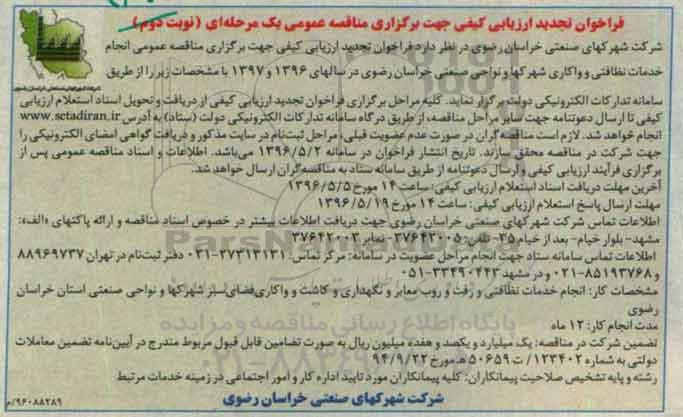 فراخوان تجدید ارزیابی کیفی جهت برگزاری مناقصه عمومی یک مرحله‌ای (نوبت دوم)
شرکت شهرکهای صنعتی خراسان رضوی در نظر دارد فراخوان تجدید ارزیابی کیفی جهت برگزاری مناقصه عمومی انجام
خدمات نظافتی و واکاری شهرکها و نواحی صنعتی خراسان رضوی در سالهای ۱۳۹۶ و ۱۳۹۷ با مشخصات زیر را از طریق
سامانه تدارکات الکترونیکی دولت برگزار نماید. کلیه مراحل برگزاری فراخوان تجدید ارزیابی کیفی از دریافت و تحویل اسناد استعلام ارزیابی
کیفی تا ارسال دعوتنامه جهت سایر مراحل مناقصه، از طریق درگاه سامانه تدارکات الکترونیکی دولت (ستاد) به آدرس www.setadiran.ir
انجام خواهد شد. لازم است مناقصه گران در صورت عدم عضویت قبلی، مراحل ثبت‌نام در سایت مذکور و دریافت گواهی امضای الکترونیکی را
جهت شرکت در مناقصه محقق سازند. تاریخ انتشار فراخوان در سامانه ۱۳۹۶/۵/۲ می‌باشد. اطلاعات و اسناد مناقصه عمومی پس از
برگزاری فرآیند ارزیابی کیفی و ارسال دعوتنامه از طریق سامانه ستاد به مناقصه‌گران ارسال خواهد شد.
آخرین مهلت دریافت اسناد استعلام ارزیابی کیفی: ساعت ۱۴ مورخ ۱۳۹۶/۵/۵
مهلت ارسال پاسخ استعلام ارزیابی کیفی: ساعت ۱۴ مورخ ۱۳۹۶/۵/۱۹
اطلاعات تماس شرکت شهرکهای صنعتی خراسان رضوی جهت دریافت اطلاعات بیشتر در خصوص اسناد مناقصه و ارائه پاکتهای «الف»:
مشهد- بلوار خیام- بعد از خیام ۳۵- تلفن: ۵-۳۷۶۴۳۰۰۵ نمابر ۳۷۶۴۲۰۰۳
اطلاعات تماس سامانه ستاد جهت انجام مراحل عضویت در سامانه: مرکز تماس: ۲۷۳۱۳۱۳۱-۰۲۱ دفتر ثبت‌نام در تهران ۸۸۹۶۹۷۳۷
و ۸۵۱۹۳۷۶۸-۰۲۱ و در مشهد ۳۳۴۹۰۴۴۳-۰۵۱
مشخصات کار: انجام خدمات نظافتی و رفت و روب معابر و نگهداری و کاشت و واکاری فضای سبز شهرکها و نواحی صنعتی استان خراسان
رضوی
مدت انجام کار: ۱۲ ماه
تضمین شرکت در مناقصه: یک میلیارد و یکصد و هفده میلیون ریال به صورت تضامین قابل قبول مربوط مندرج در آیین‌نامه تضمین معاملات
دولتی به شماره ۱۲۳۴۰۲/ ت ۵۰۶۵۹ هـ مورخ ۹۴/۹/۲۲
رشته و پایه تشخیص صلاحیت پیمانکاران: کلیه پیمانکاران مورد تایید اداره کار و امور اجتماعی در زمینه خدمات مرتبط
شرکت شهرکهای صنعتی خراسان رضوی
۹۶۰۸۸۲۸۹/م